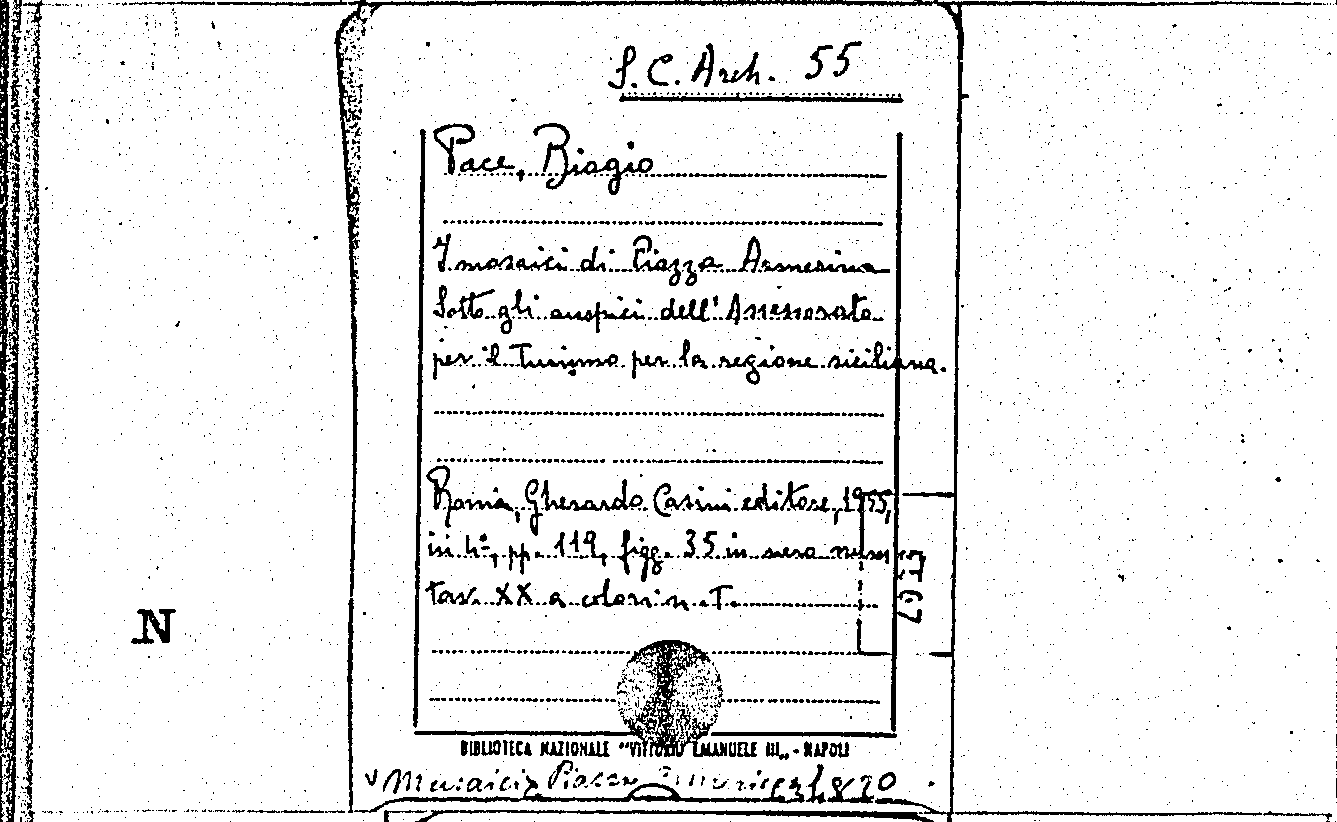 S. C. Arch. 55
Pace, Biagio
I mosaici di Piazza Armerina
Sotto gli auspici dell'Assessorato
per il Turismo per la regione siciliana.
Roma, Gherardo Casini editore, 1955,
in 4°, pp. 119, figg. 35 in nero nel testo
tav. XX a colori n. T.
N
BIBLIOTECA NAZIONALE "VITTORIO EMANUELE III„ - NAPOLI
Musaici Piazza